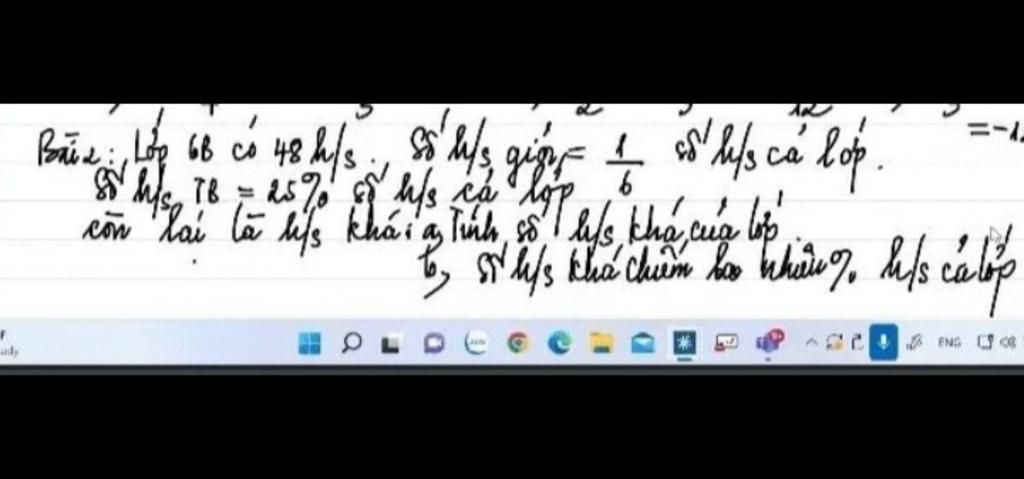 = -1.
Bài 2: Lớp 6B có 48 h/s. Số h/s giỏi = 1/6 số h/s cả lớp.
Số h/s TB = 25% số h/s cả lớp
còn lại là h/s khá: a, Tính số h/s khá của lớp
b, Số h/s khá chiếm bao nhiêu % h/s cả lớp
ENG